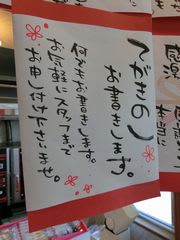 てがきのし
お書きします。
何でもお書きします。
お気軽にスタッフまで
お申し付け下さいませ。
本当に